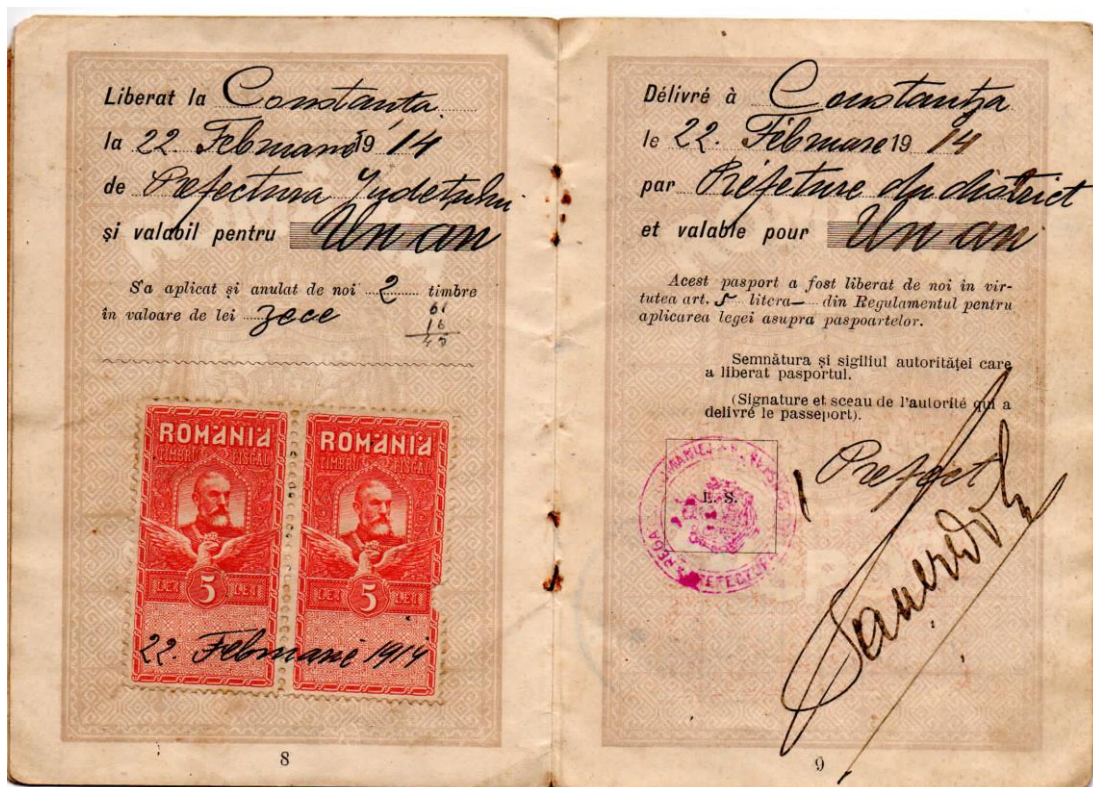 Liberat la Constanța
la 22. Februarie 1914
de Prefectura Județului
și valabil pentru Un an
S'a aplicat și anulat de noi 2 timbre
în valoare de lei zece
61
16
45
ROMANIA
TIMBRU FISCAL
5
LEI LEI
ROMANIA
TIMBRU FISCAL
5
LEI LEI
22. Februarie 1914
8
Délivré à Constantza
le 22. Fébruare 1914
par Préfeture du district
et valable pour Un an
Acest pasport a fost liberat de noi in vir-
tutea art. 5 litera — din Regulamentul pentru
aplicarea legei asupra paspoartelor.
Semnătura și sigiliul autorităței care
a liberat pasportul.
(Signature et sceau de l'autorité qui a
delivré le passeport).
L. S.
Prefect
9